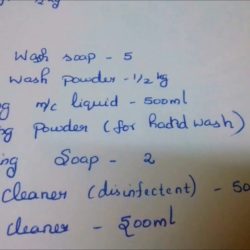 Wash soap - 5
Wash powder - 1/2 kg
ng m/c liquid - 500ml
ng powder (for hand wash)
ing Soap - 2
cleaner (disinfectent) - 50
cleaner - 500ml